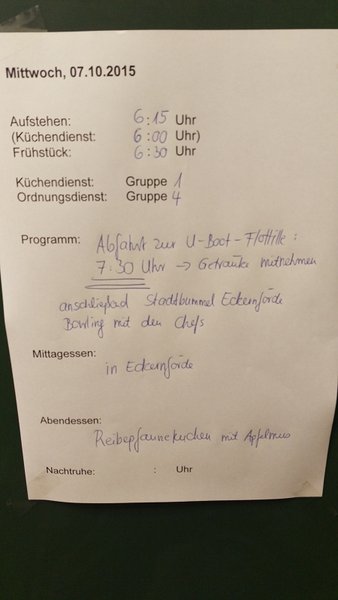 Mittwoch, 07.10.2015
Aufstehen: 6:15 Uhr
(Küchendienst: 6:00 Uhr)
Frühstück: 6:30 Uhr
Küchendienst: Gruppe 1
Ordnungsdienst: Gruppe 4
Programm: Abfahrt zur U-Boot-Flottille:
7:30 Uhr → Getränke mitnehmen
anschließend Stadtbummel Eckernförde
Bowling mit den Chefs
Mittagessen:
in Eckernförde
Abendessen:
Reibepfannekuchen mit Apfelmus
Nachtruhe: : Uhr